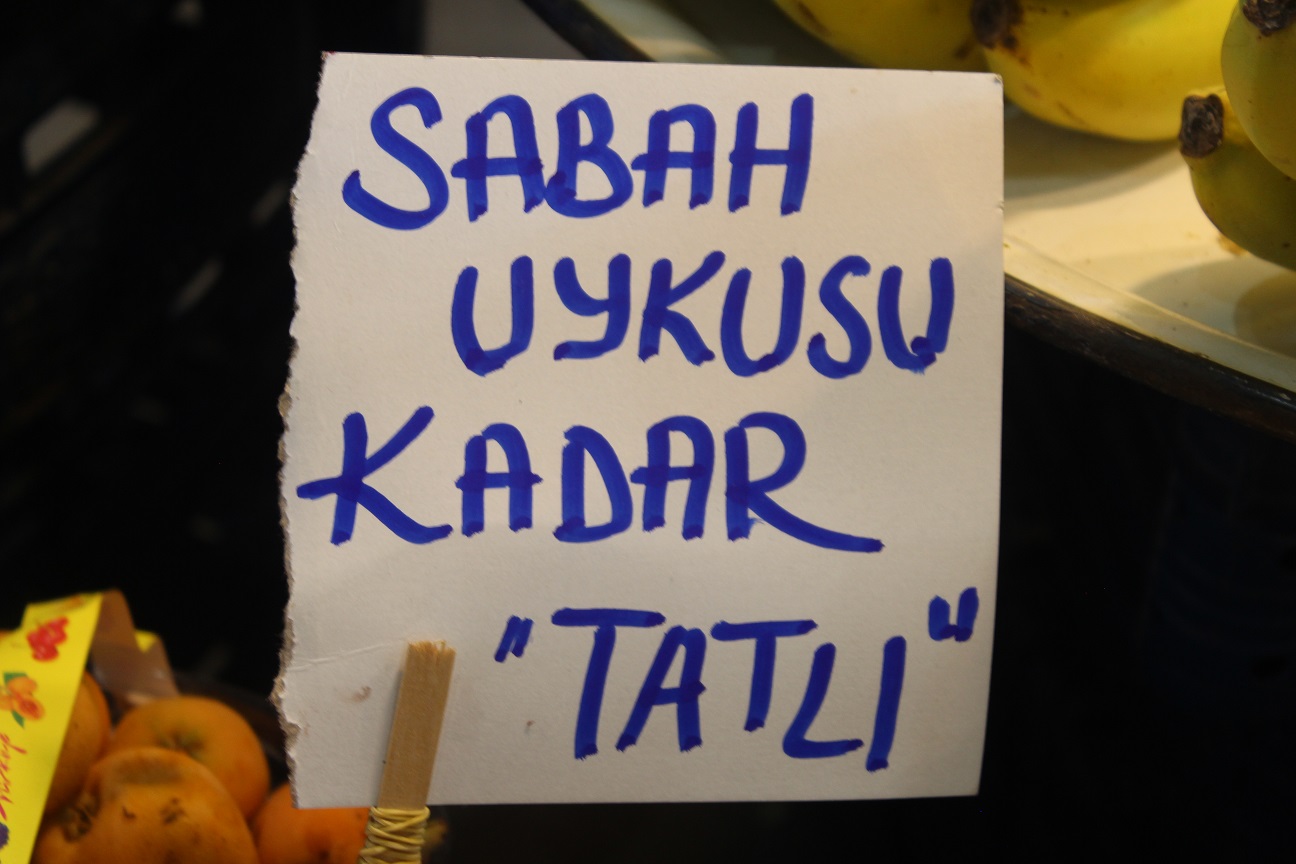 SABAH
UYKUSU
KADAR
"TATLI"